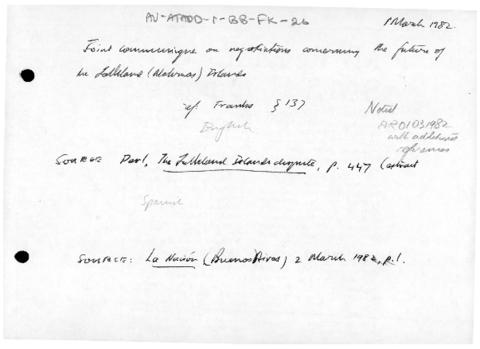 AU-ATADD-1-BB-FK-26
1 March 1982.
Joint communique on negotiations concerning the future of
the Falkland (Malvinas) Islands
cf Franks § 137
English
Noted
AR01031982
with additional
references
SOURCE: Perl, The Falkland Islands dispute, p. 447 (extract
Spanish
SOURCE: La Nación (Buenos Aires) 2 March 1982, p.1.